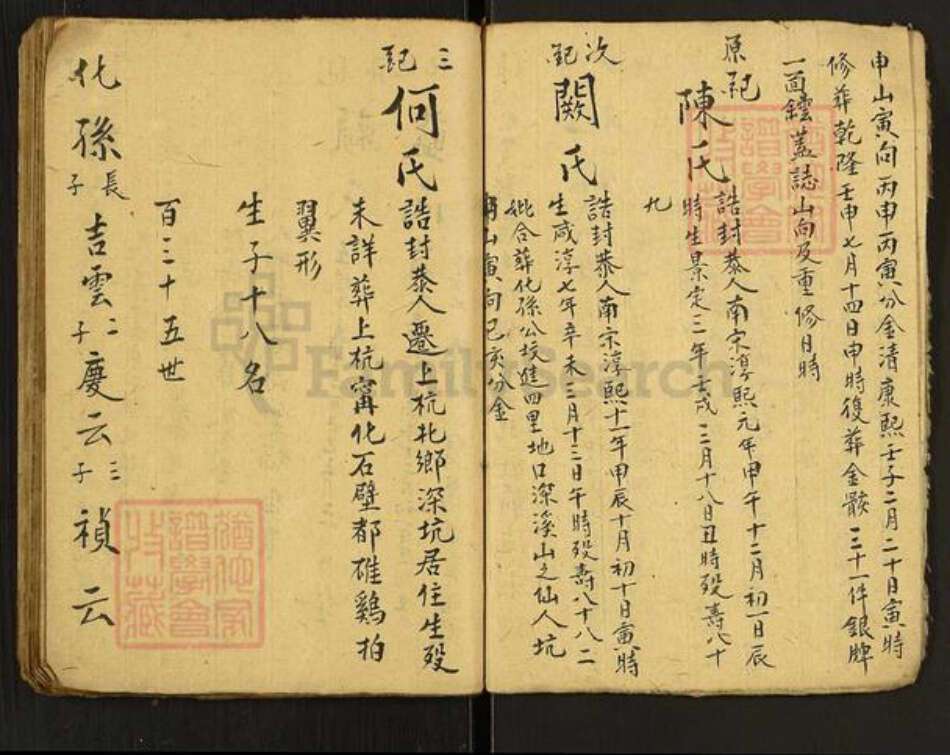 申山寅向丙申丙寅分金清康熙壬子二月二十日寅時
修葬乾隆壬申七月十四日申時復葬金骸三十一件銀牌
一面鐫蓋誌山向及重修日時
原妣
陳氏 誥封恭人南宋淳熙元年甲午十二月初一日辰
時生景定三年壬戌二月十八日丑時殁壽八十
九
次妣
闕氏 誥封恭人南宋淳熙十一年甲辰十月初十日寅時
生咸淳七年辛未三月十三日午時殁壽八十八二
妣合葬化孫公坑進四里地口深溪山之仙人坑
申山寅向己亥分金
三妣
何氏 誥封恭人遷上杭北鄉深坑居住生殁
未詳葬上杭甯化石壁都碓鷄拍
翼形
生子十八名
百三十五世
化孫 長子 吉雲 二子 慶云 三子 禎云
FamilySearch